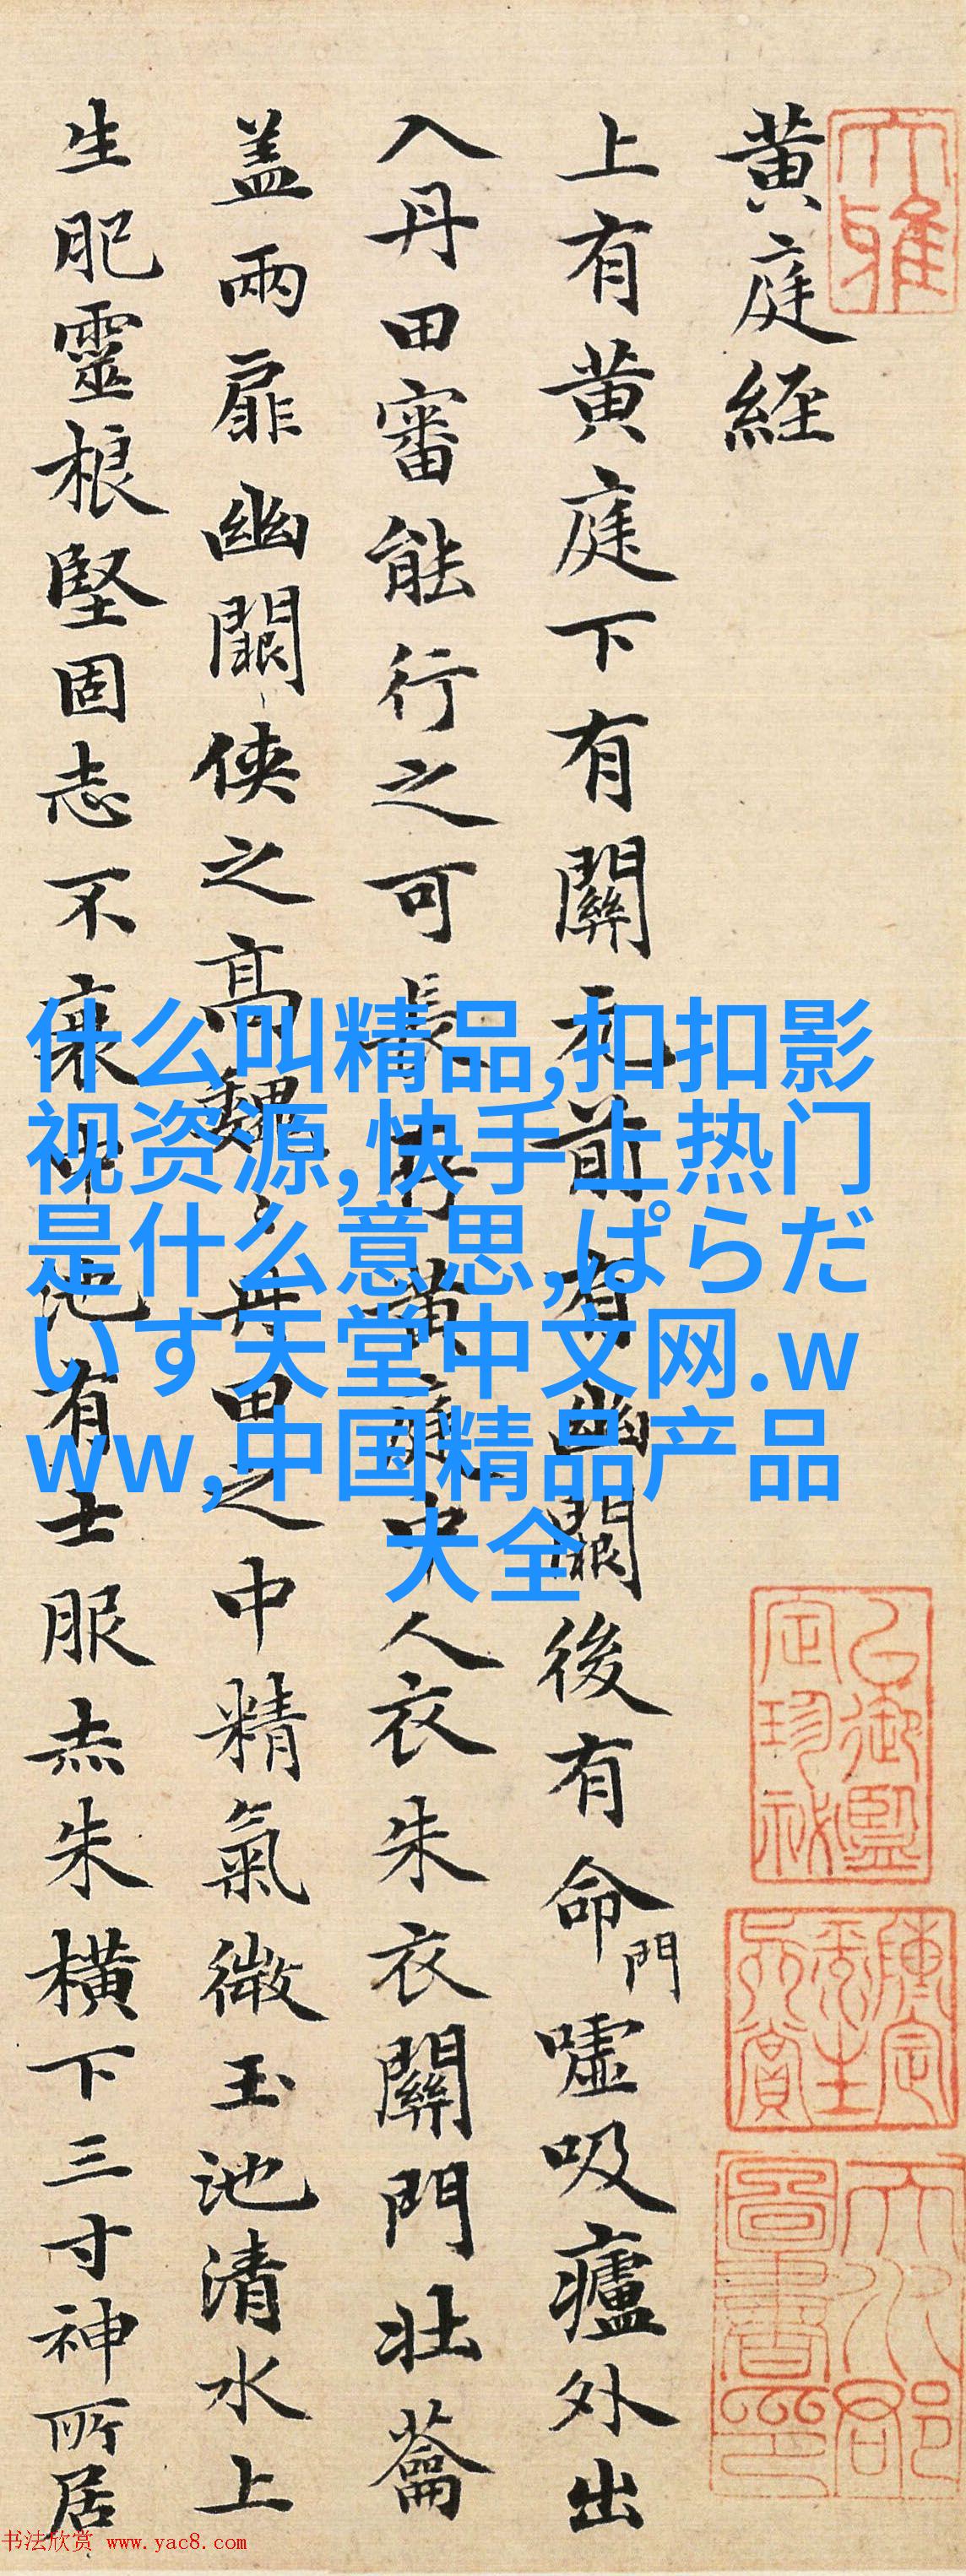 黄庭経
上有黄庭下有關元前有幽闕後有命門嘘吸廬外出
入丹田審能行之可長存黄庭中人衣朱衣關門壯蘥
盖兩扉幽闕侠之高巍〻丹田之中精氣微玉池清水上
生肥靈根堅固志不衰中池有士服赤朱横下三寸神所居
什么叫精品,扣扣影
视资源,快手上热门
是什么意思,ぱらだ
いす天堂中文网.w
ww,中国精品产品
大全
大雅
乙御
书法欣赏 www.yac8.com